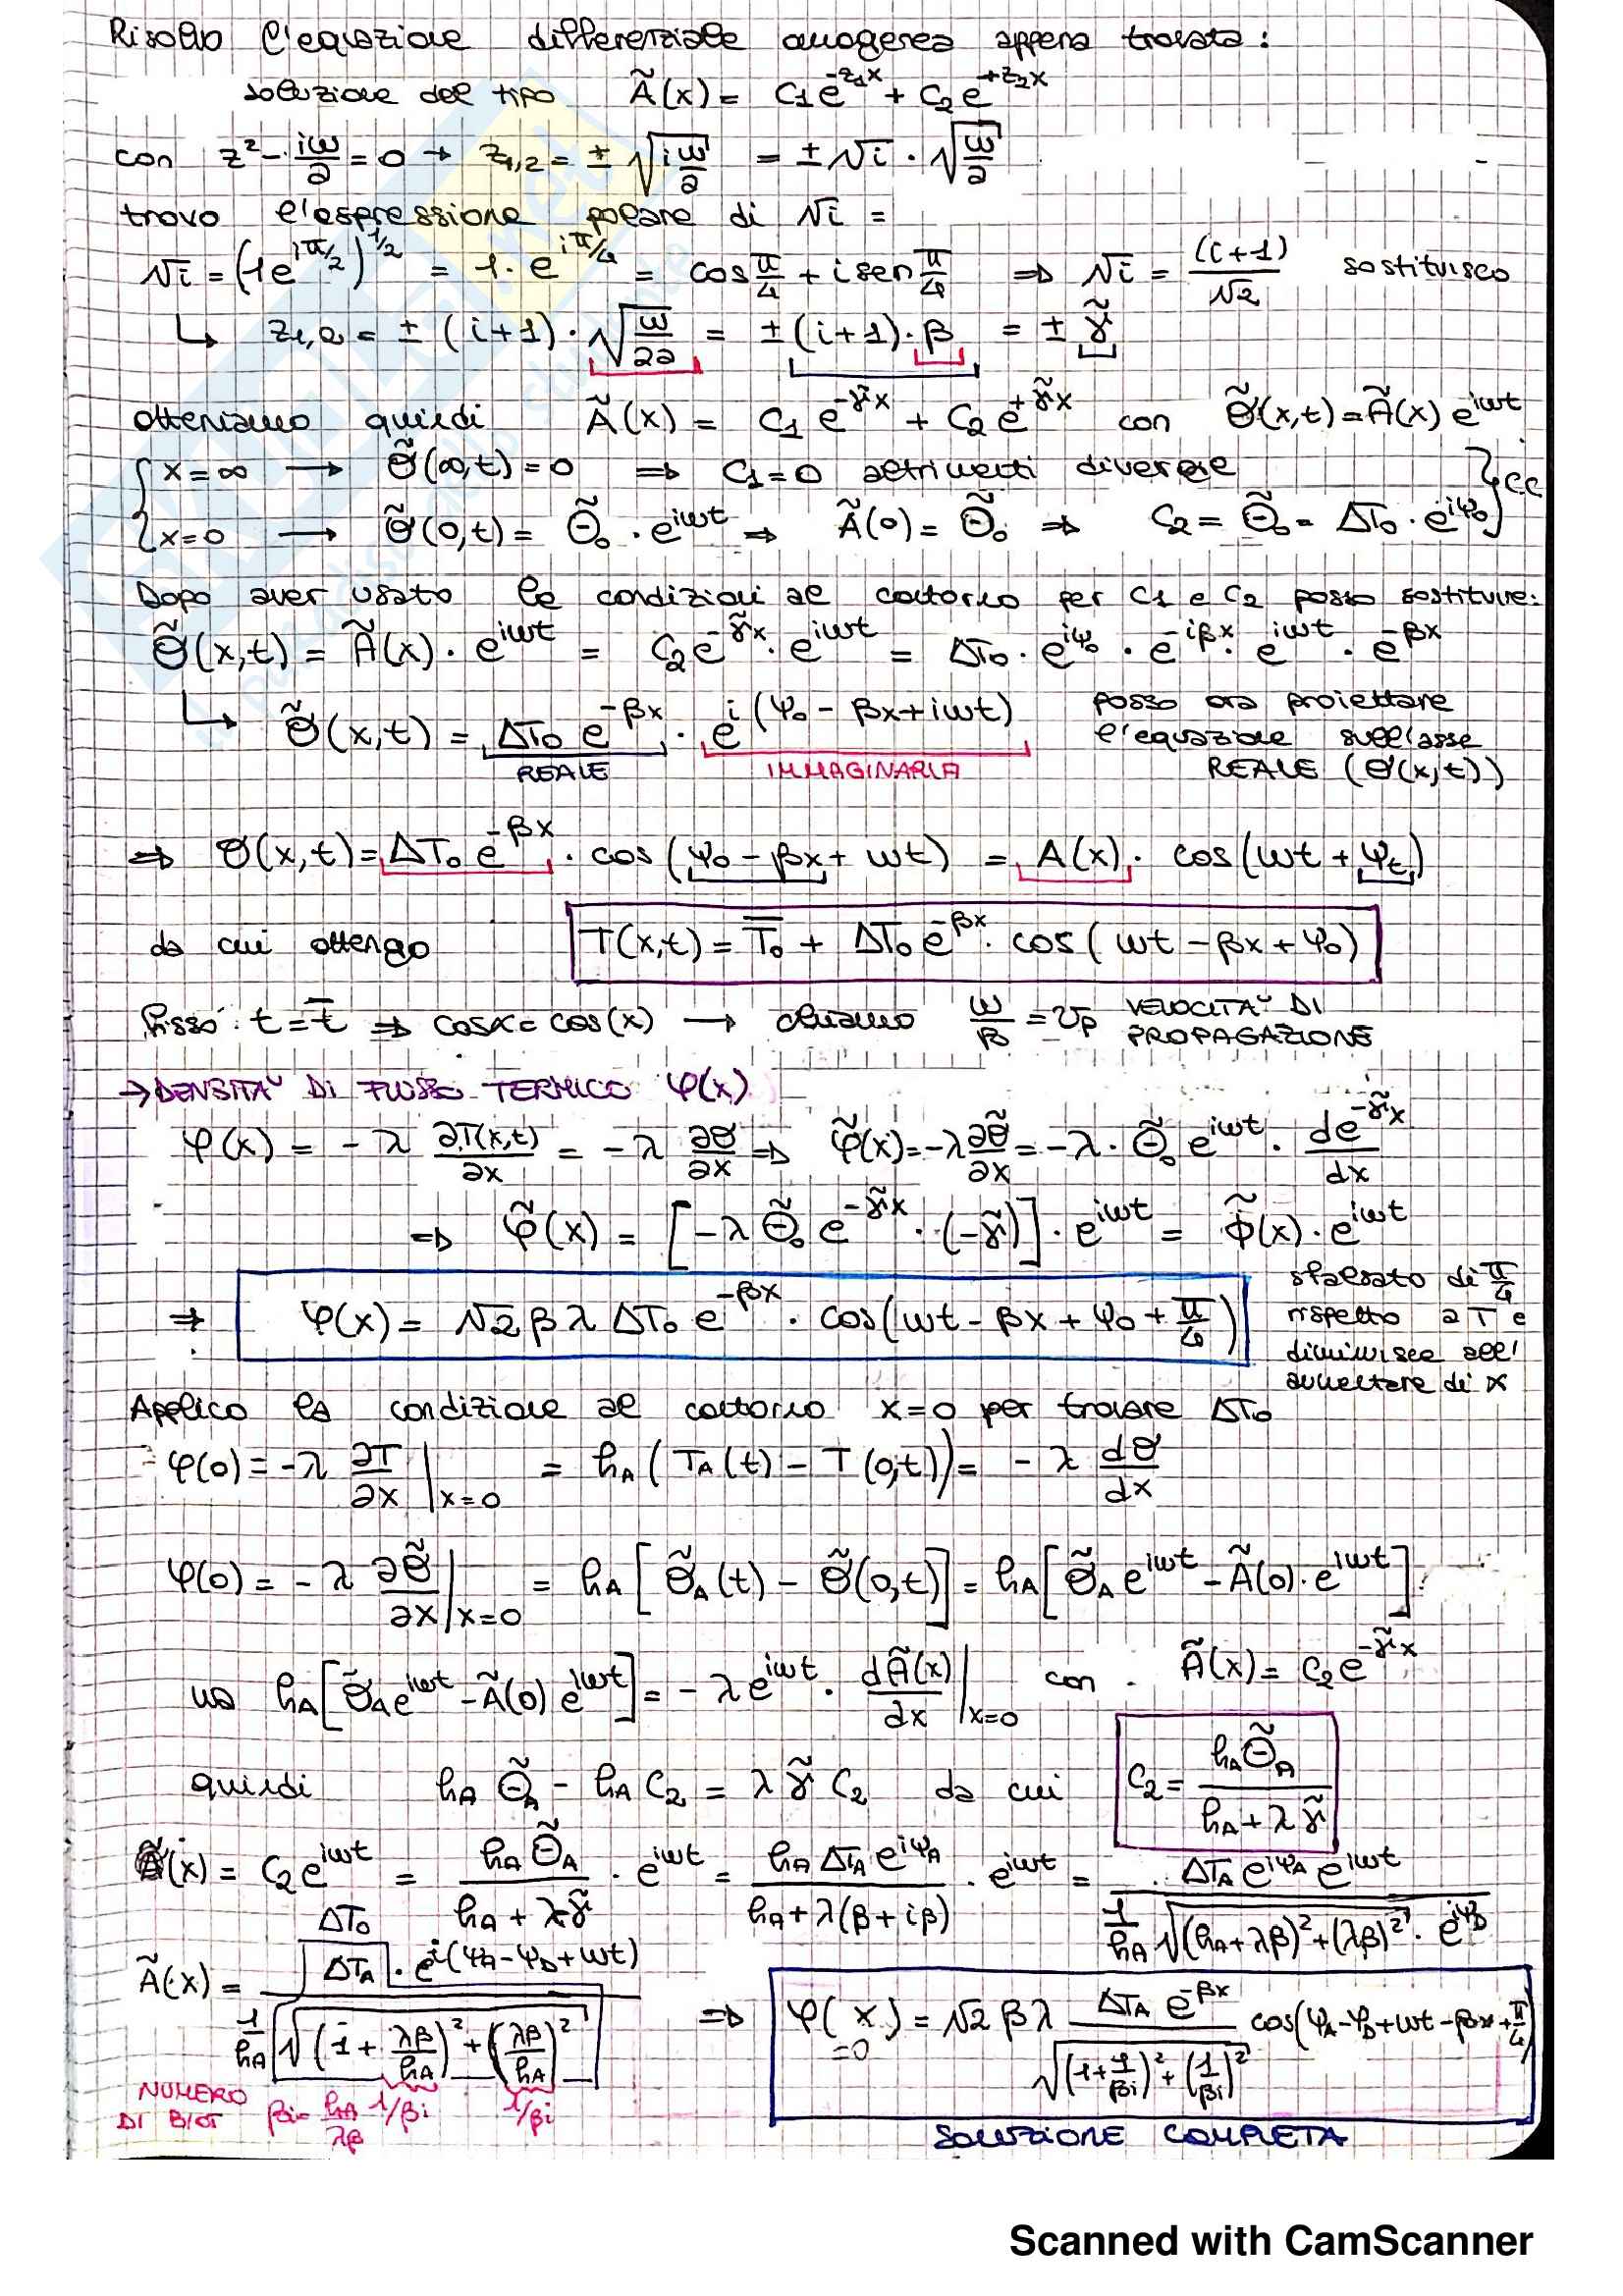 Risolvo l'equazione differenziale omogenea appena trovata:
soluzione del tipo Ã(x) = C1 e^{-z1x} + C2 e^{+z2x}
con z² - iω/a = 0 → z1,2 = ± √(iω/a) = ± √i · √(ω/a)
trovo l'espressione polare di √i =
√i = (1e^{iπ/2})^{1/2} = 1· e^{iπ/4} = cos π/4 + i sen π/4 ⇒ √i = (i+1)/√2 sostituisco
↳ z1,2 = ± (i+1) · √(ω/2a) = ± (i+1) · β = ± γ̃
otteniamo quindi Ã(x) = C1 e^{-γ̃x} + C2 e^{+γ̃x} con θ̃(x,t) = Ã(x) e^{iωt}
{ x=∞ → θ̃(∞,t) = 0 ⇒ C1=0 altrimenti diverge } CC
{ x=0 → θ̃(0,t) = Θ̃o · e^{iωt} ⇒ Ã(0) = Θ̃o ⇒ C2 = Θ̃o = ΔTo · e^{iψo}
Dopo aver usato le condizioni al contorno per C1 e C2 posso sostituire:
θ̃(x,t) = Ã(x) · e^{iωt} = C2 e^{-γ̃x} · e^{iωt} = ΔTo · e^{iψo} · e^{-iβx} · e^{iωt} · e^{-βx}
↳ θ̃(x,t) = ΔTo e^{-βx} · e^{i(ψo - βx + iωt)} posso ora proiettare
l'equazione sull'asse
REALE IMMAGINARIA REALE (θ(x,t))
⇒ θ(x,t) = ΔTo e^{-βx} · cos(ψo - βx + ωt) = A(x) · cos(ωt + ψt)
da cui ottengo T(x,t) = T̄o + ΔTo e^{-βx} · cos(ωt - βx + ψo)
fisso t = t̄ ⇒ cosα = cos(x) → chiamo ω/β = vp VELOCITA' DI
PROPAGAZIONE
→ DENSITA' DI FLUSSO TERMICO φ(x)
φ(x) = - λ ∂T(x,t)/∂x = - λ ∂θ/∂x ⇒ φ̃(x) = -λ ∂θ̃/∂x = -λ · Θ̃o e^{iωt} · de^{-γ̃x}/dx
⇒ φ̃(x) = [-λ Θ̃o e^{-γ̃x} · (-γ̃)] · e^{iωt} = Φ̃(x) · e^{iωt}
⇒ φ(x) = √2 β λ ΔTo e^{-βx} · cos(ωt - βx + ψo + π/4)
sfalsato di π/4
rispetto a T e
diminuisce all'
aumentare di x
Applico la condizione al contorno x=0 per trovare ΔTo
φ(0) = -λ ∂T/∂x |x=0 = hA (TA(t) - T(0,t)) = - λ dθ/dx
φ(0) = - λ ∂θ̃/∂x |x=0 = hA [θ̃A(t) - θ̃(0,t)] = hA [θ̃A e^{iωt} - Ã(0) · e^{iωt}]
hA [θ̃A e^{iωt} - Ã(0) e^{iωt}] = - λ e^{iωt} · dÃ(x)/dx |x=0 con Ã(x) = C2 e^{-γ̃x}
quindi hA Θ̃A - hA C2 = λ γ̃ C2 da cui C2 = hA Θ̃A / (hA + λ γ̃)
(x) = C2 e^{iωt} = hA Θ̃A / (hA + λγ̃) · e^{iωt} = hA ΔTA e^{iψA} / (hA + λ(β+iβ)) · e^{iωt} = ΔTA e^{iψA} e^{iωt} / (1/hA √((hA+λβ)² + (λβ)²) · e^{iψD})
ΔTo
Ã(x) = ΔTA · e^{i(ψA-ψD+ωt)} / (1/hA √((1 + λβ/hA)² + (λβ/hA)²))
⇒ φ(x) = √2 β λ ΔTA e^{-βx} / √((1+1/βi)² + (1/βi)²) cos(ψA-ψD+ωt-βx+π/4)
=0
NUMERO
DI BIOT βi = hA/λβ 1/βi 1/βi
SOLUZIONE COMPLETA
Scanned with CamScanner